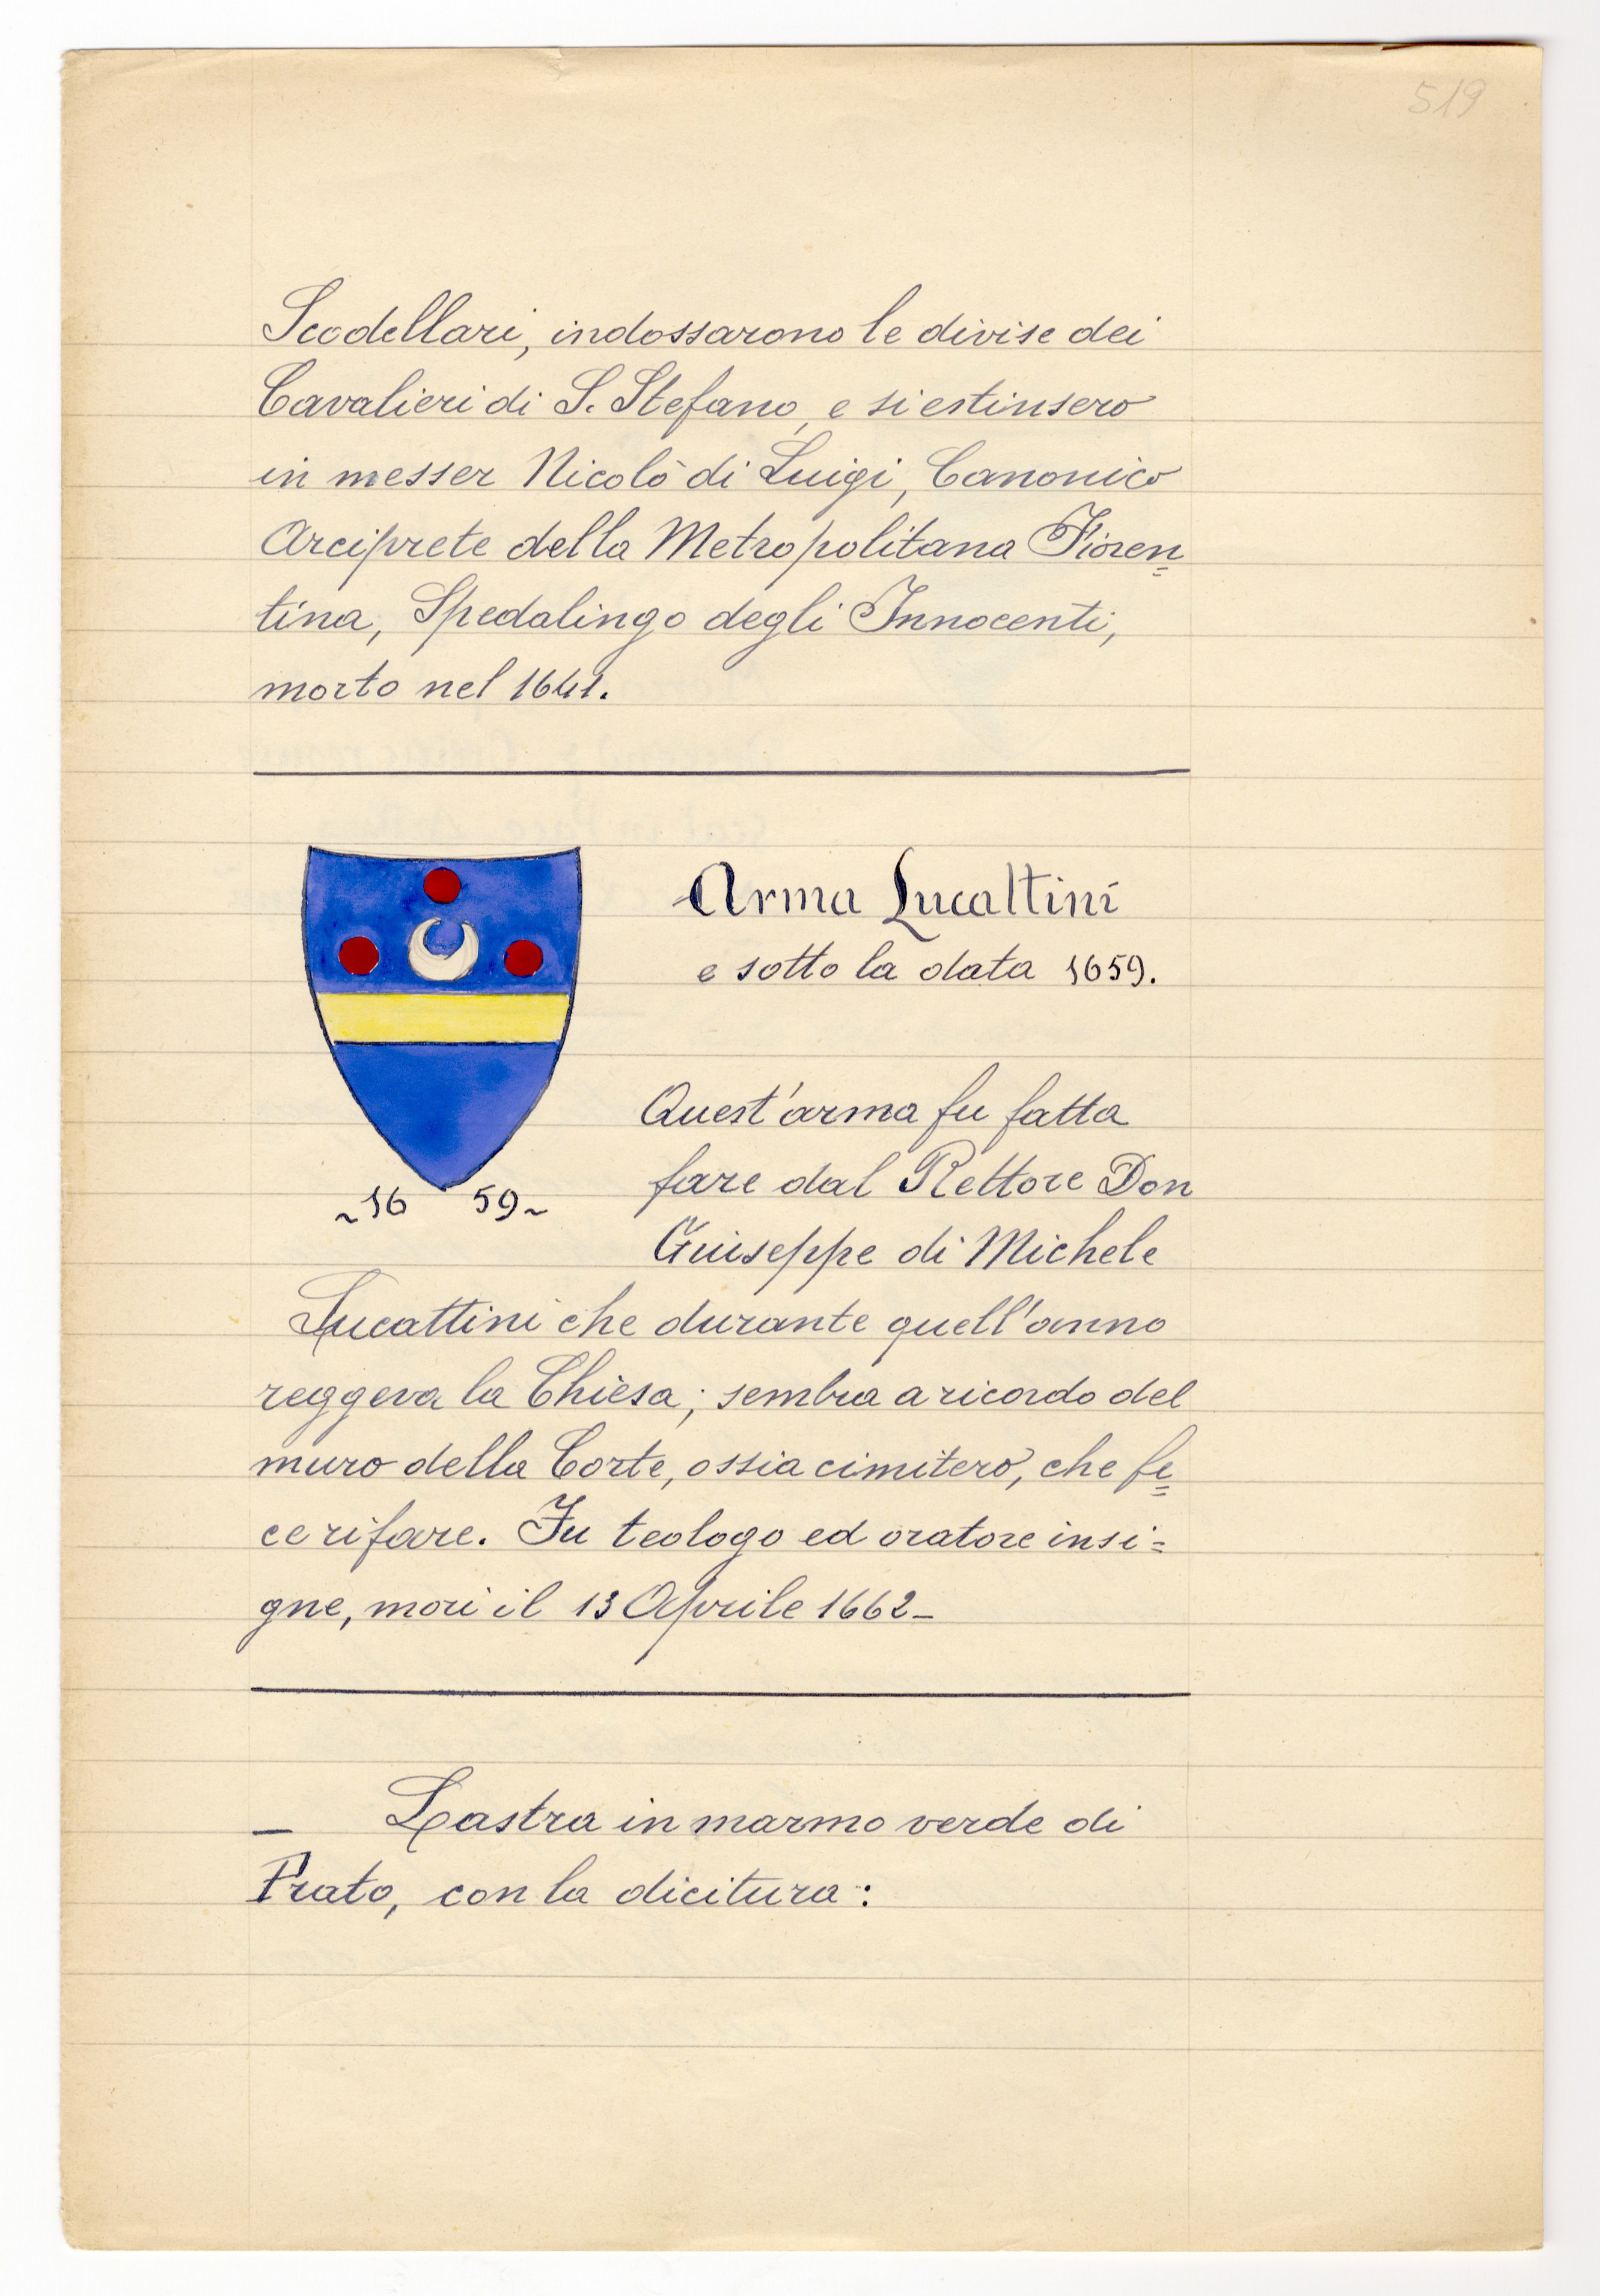 519
Scodellari, indossarono le divise dei
Cavalieri di S. Stefano, e si estinsero
in messer Nicolò di Luigi, Canonico
Arciprete della Metropolitana Fioren=
tina, Spedalingo degli Innocenti,
morto nel 1641.
Arma Lucattini
e sotto la data 1659.
~16 59~
Quest'arma fu fatta
fare dal Rettore Don
Giuseppe di Michele
Lucattini che durante quell'anno
reggeva la Chiesa; sembra a ricordo del
muro della Corte, ossia cimitero, che fe=
ce rifare. Fu teologo ed oratore insi=
gne, morì il 13 Aprile 1662_
_ Lastra in marmo verde di
Prato, con la dicitura: